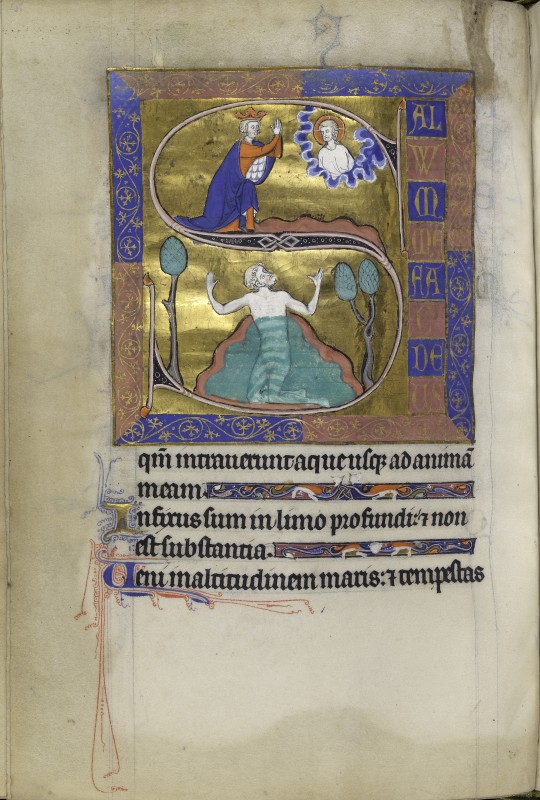 S
AL
W
M
ME
FA
C
DE
US
qm̄ intrauerunt aque usqꝫ ad animā
meam.
Infixus sum in limo profundi: ⁊ non
est substantia.
Veni in altitudinem maris: ⁊ tempestas